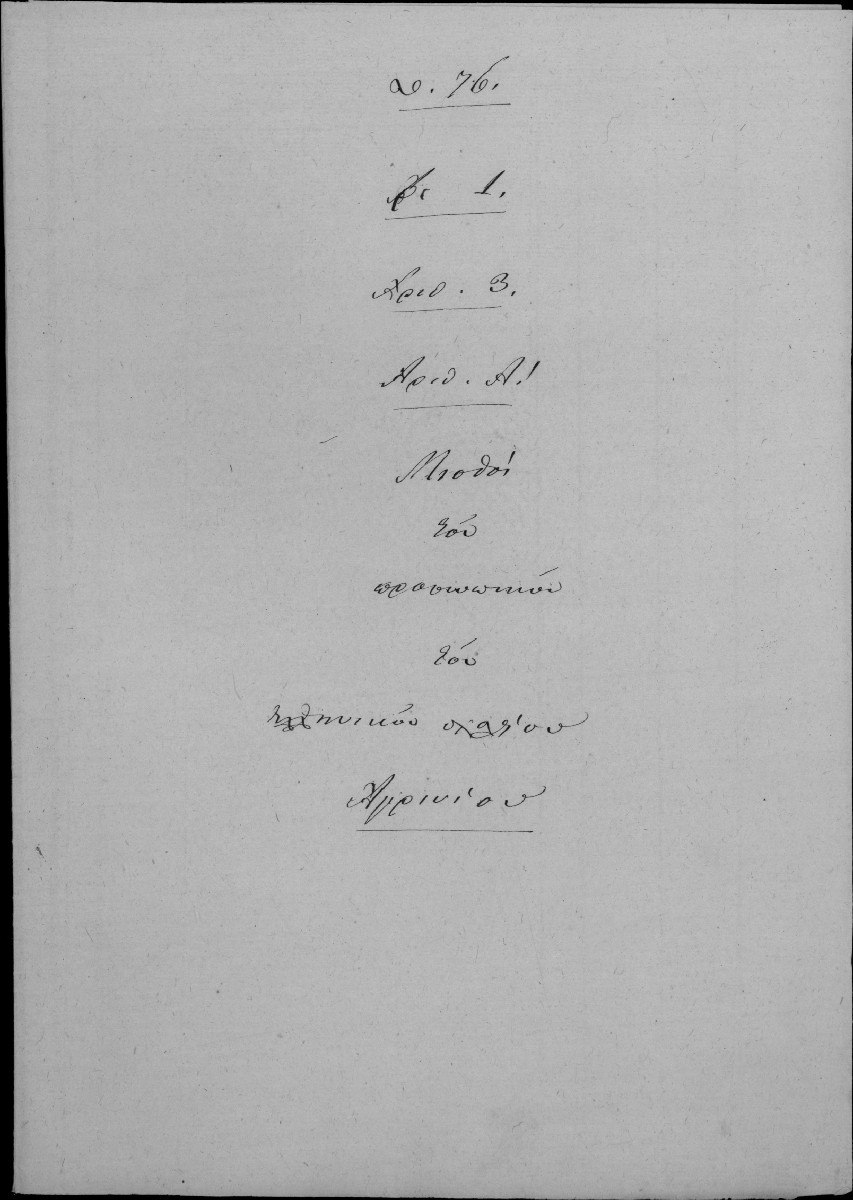 76.
1.
Αριθ. 3.
Αριθ. Α!
Μισθοί
τού
προσωπικού
τού
Ελληνικού σχολείου
Αγρινίου